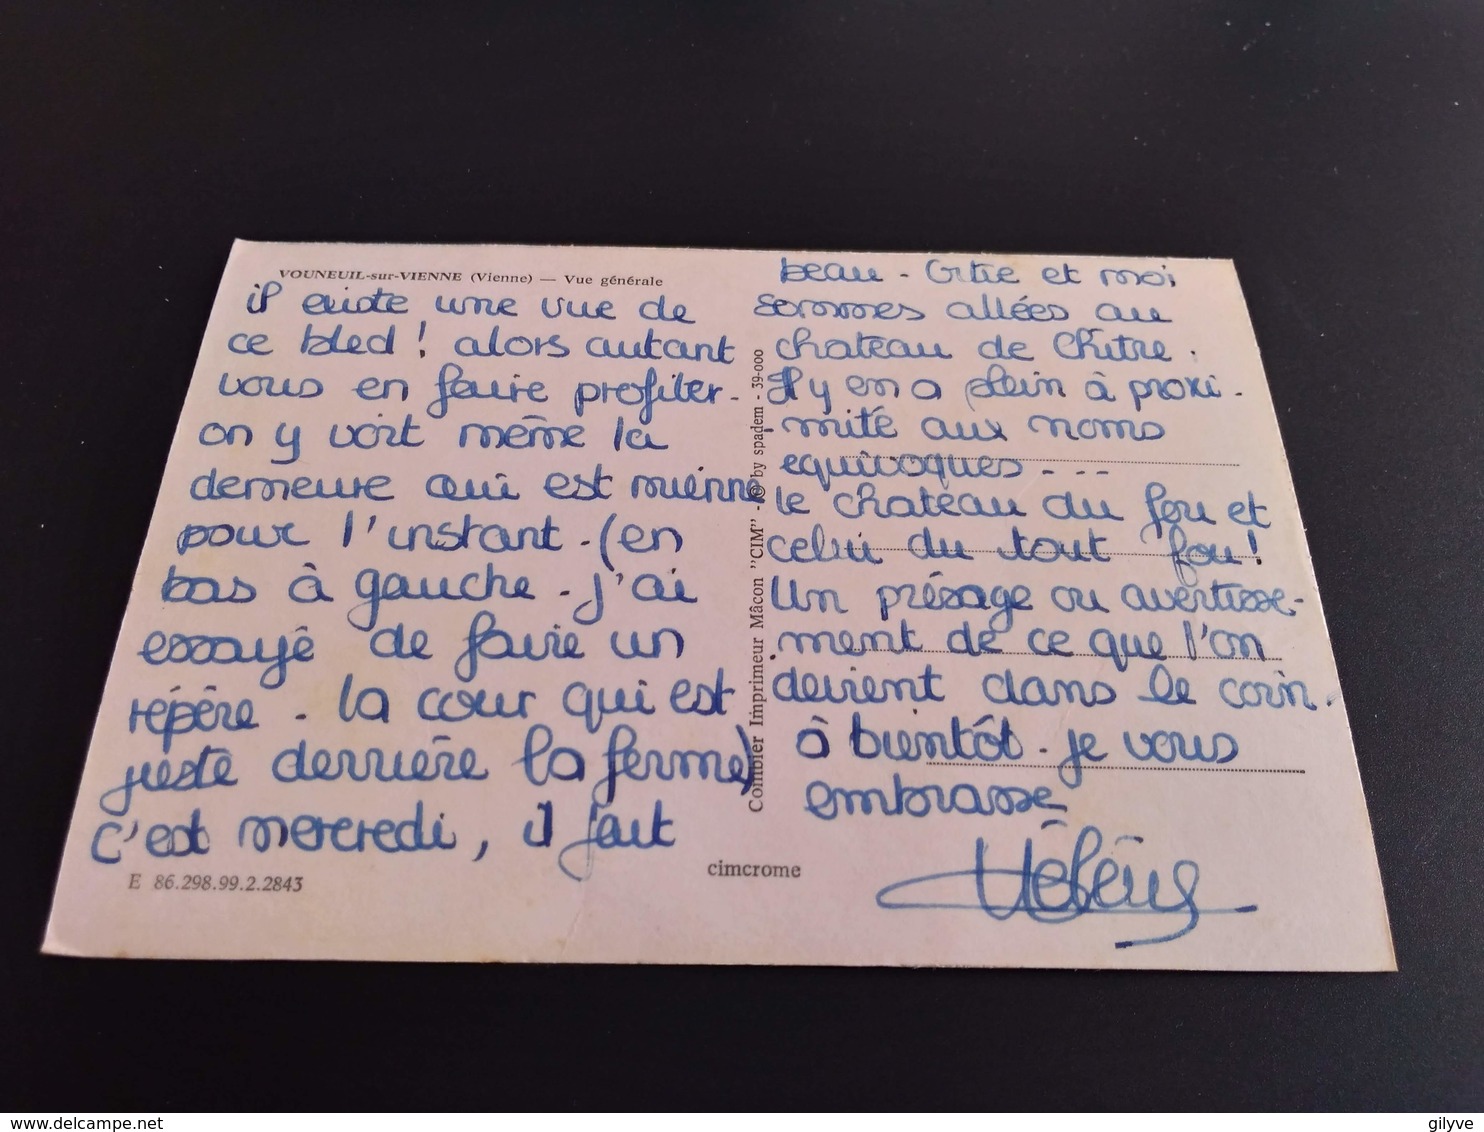 VOUNEUIL-sur-VIENNE (Vienne) — Vue générale
il existe une vue de
ce bled ! alors autant
vous en faire profiter.
on y voit même la
demeure qui est mienne
pour l'instant. (en
bas à gauche. j'ai
essayé de faire un
répère. la cour qui est
juste derrière la ferme)
c'est mercredi, il fait
E 86.298.99.2.2843
cimcrome
Combier Imprimeur Mâcon "CIM" - © by spadem - 39-000
beau - et moi
sommes allées au
chateau de Chitre.
Il y en a plein à proxi-
-mité aux noms
equivoques - - -
le chateau du fou et
celui du tout fou!
Un présage ou avertisse-
ment de ce que l'on
devient dans le coin.
à bientôt. je vous
embrasse
Hélène
delcampe.net
gilyve